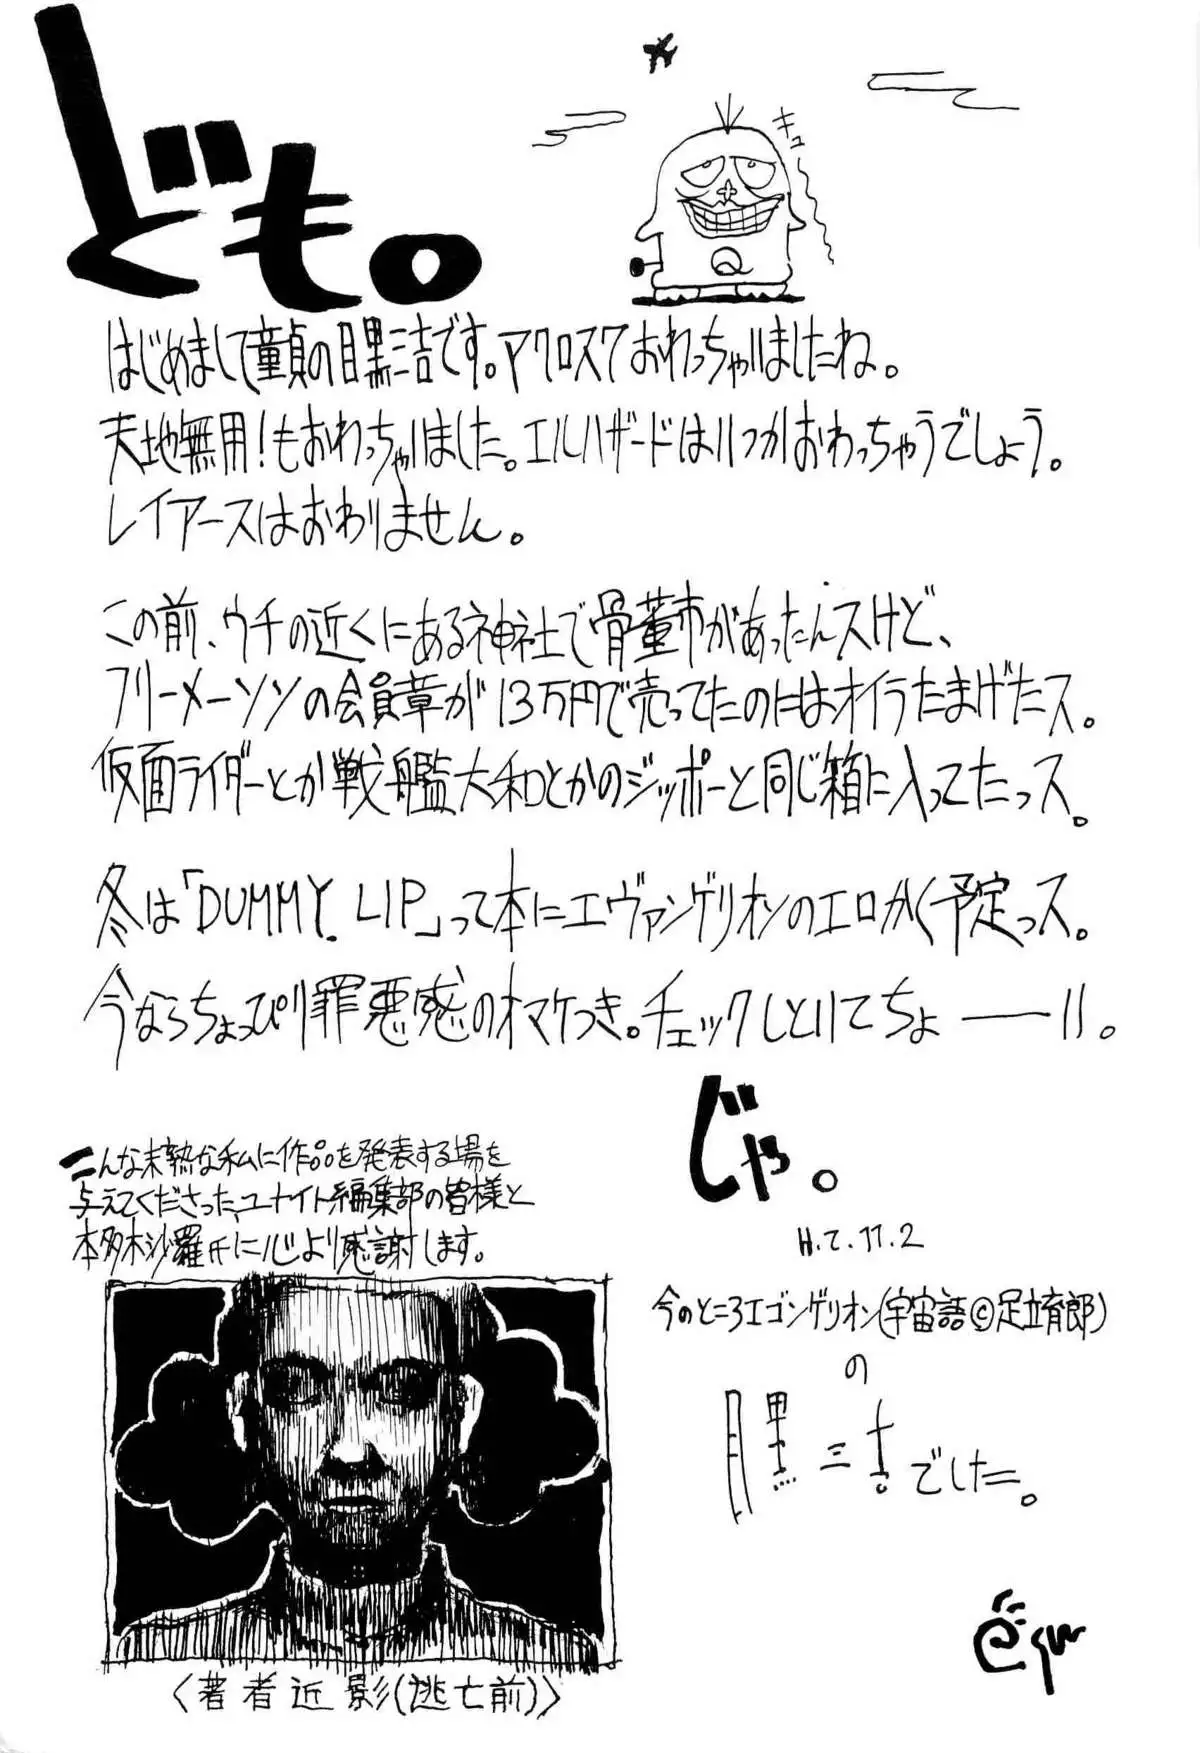 ども。
キュー
Q
はじめまして童貞の目黒三吉です。アクロスケおわっちゃいましたね。
天地無用!もおわっちゃいました。エルハザードはいつかおわっちゃうでしょう。
レイアースはおわりません。
この前、ウチの近くにある神社で骨董市があったんスけど、
フリーメーソンの会員章が13万円で売ってたのにはオイラたまげたス。
仮面ライダーとか戦艦大和とかのジッポーと同じ箱に入ってたっス。
冬は「DUMMY. LIP」って本にエヴァンゲリオンのエロかく予定っス。
今ならちょっぴり罪悪感のオマケつき。チェックしといてちょ――い。
じゃ。
こんな未熟な私に作品を発表する場を
与えてくださった、ユナイト編集部の皆様と
本多木沙羅氏に心より感謝します。
H.7.11.2
今のところエゴンゲリオン(宇宙語©足立育郎)
の
目黒三吉でした。
〈著者近影(逃亡前)〉